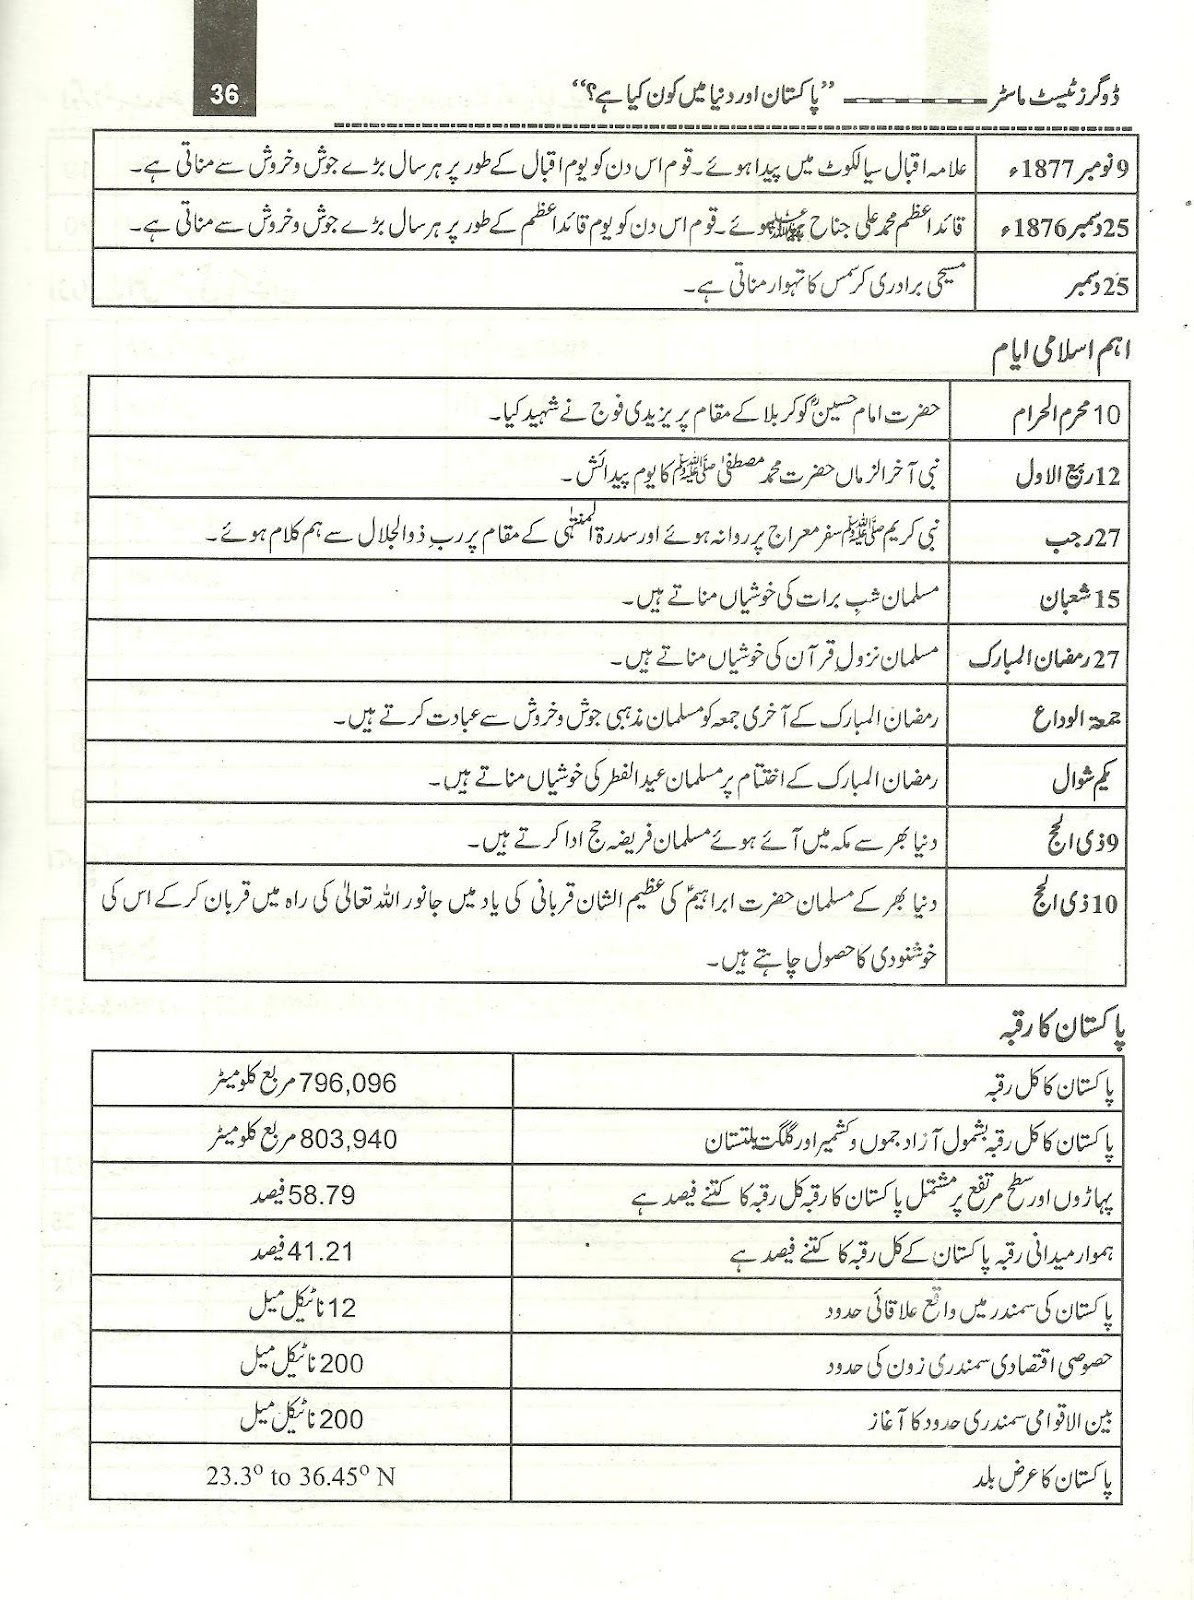 ڈوگرز ٹیسٹ ماسٹر ـ ـ ـ ـ ـ ـ ـ ـ ـ ”پاکستان اور دنیا میں کون کیا ہے؟“ 36
9 نومبر 1877ء علامہ اقبال سیالکوٹ میں پیدا ہوئے۔ قوم اس دن کو یوم اقبال کے طور پر ہر سال بڑے جوش و خروش سے مناتی ہے۔
25 دسمبر 1876ء قائداعظم محمد علی جناح ہوئے۔ قوم اس دن کو یوم قائداعظم کے طور پر ہر سال بڑے جوش و خروش سے مناتی ہے۔
25 دسمبر مسیحی برادری کرسمس کا تہوار مناتی ہے۔
اہم اسلامی ایام
10 محرم الحرام حضرت امام حسینؓ کو کربلا کے مقام پر یزیدی فوج نے شہید کیا۔
12 ربیع الاول نبی آخر الزماں حضرت محمد مصطفیٰ ﷺ کا یوم پیدائش۔
27 رجب نبی کریم ﷺ سفر معراج پر روانہ ہوئے اور سدرۃ المنتہٰی کے مقام پر ربِ ذوالجلال سے ہم کلام ہوئے۔
15 شعبان مسلمان شبِ برات کی خوشیاں مناتے ہیں۔
27 رمضان المبارک مسلمان نزولِ قرآن کی خوشیاں مناتے ہیں۔
جمعۃ الوداع رمضان المبارک کے آخری جمعہ کو مسلمان مذہبی جوش و خروش سے عبادت کرتے ہیں۔
یکم شوال رمضان المبارک کے اختتام پر مسلمان عید الفطر کی خوشیاں مناتے ہیں۔
9 ذی الحج دنیا بھر سے مکہ میں آئے ہوئے مسلمان فریضہ حج ادا کرتے ہیں۔
10 ذی الحج دنیا بھر کے مسلمان حضرت ابراہیمؑ کی عظیم الشان قربانی کی یاد میں جانور اللہ تعالیٰ کی راہ میں قربان کر کے اس کی
خوشنودی کا حصول چاہتے ہیں۔
پاکستان کا رقبہ
پاکستان کا کل رقبہ 796,096 مربع کلومیٹر
پاکستان کا کل رقبہ بشمول آزاد جموں و کشمیر اور گلگت بلتستان 803,940 مربع کلومیٹر
پہاڑوں اور سطح مرتفع پر مشتمل پاکستان کا رقبہ کل رقبہ کا کتنے فیصد ہے 58.79 فیصد
ہموار میدانی رقبہ پاکستان کے کل رقبہ کا کتنے فیصد ہے 41.21 فیصد
پاکستان کی سمندر میں واقع علاقائی حدود 12 ناٹیکل میل
خصوصی اقتصادی سمندری زون کی حدود 200 ناٹیکل میل
بین الاقوامی سمندری حدود کا آغاز 200 ناٹیکل میل
پاکستان کا عرض بلد 23.3º to 36.45º N